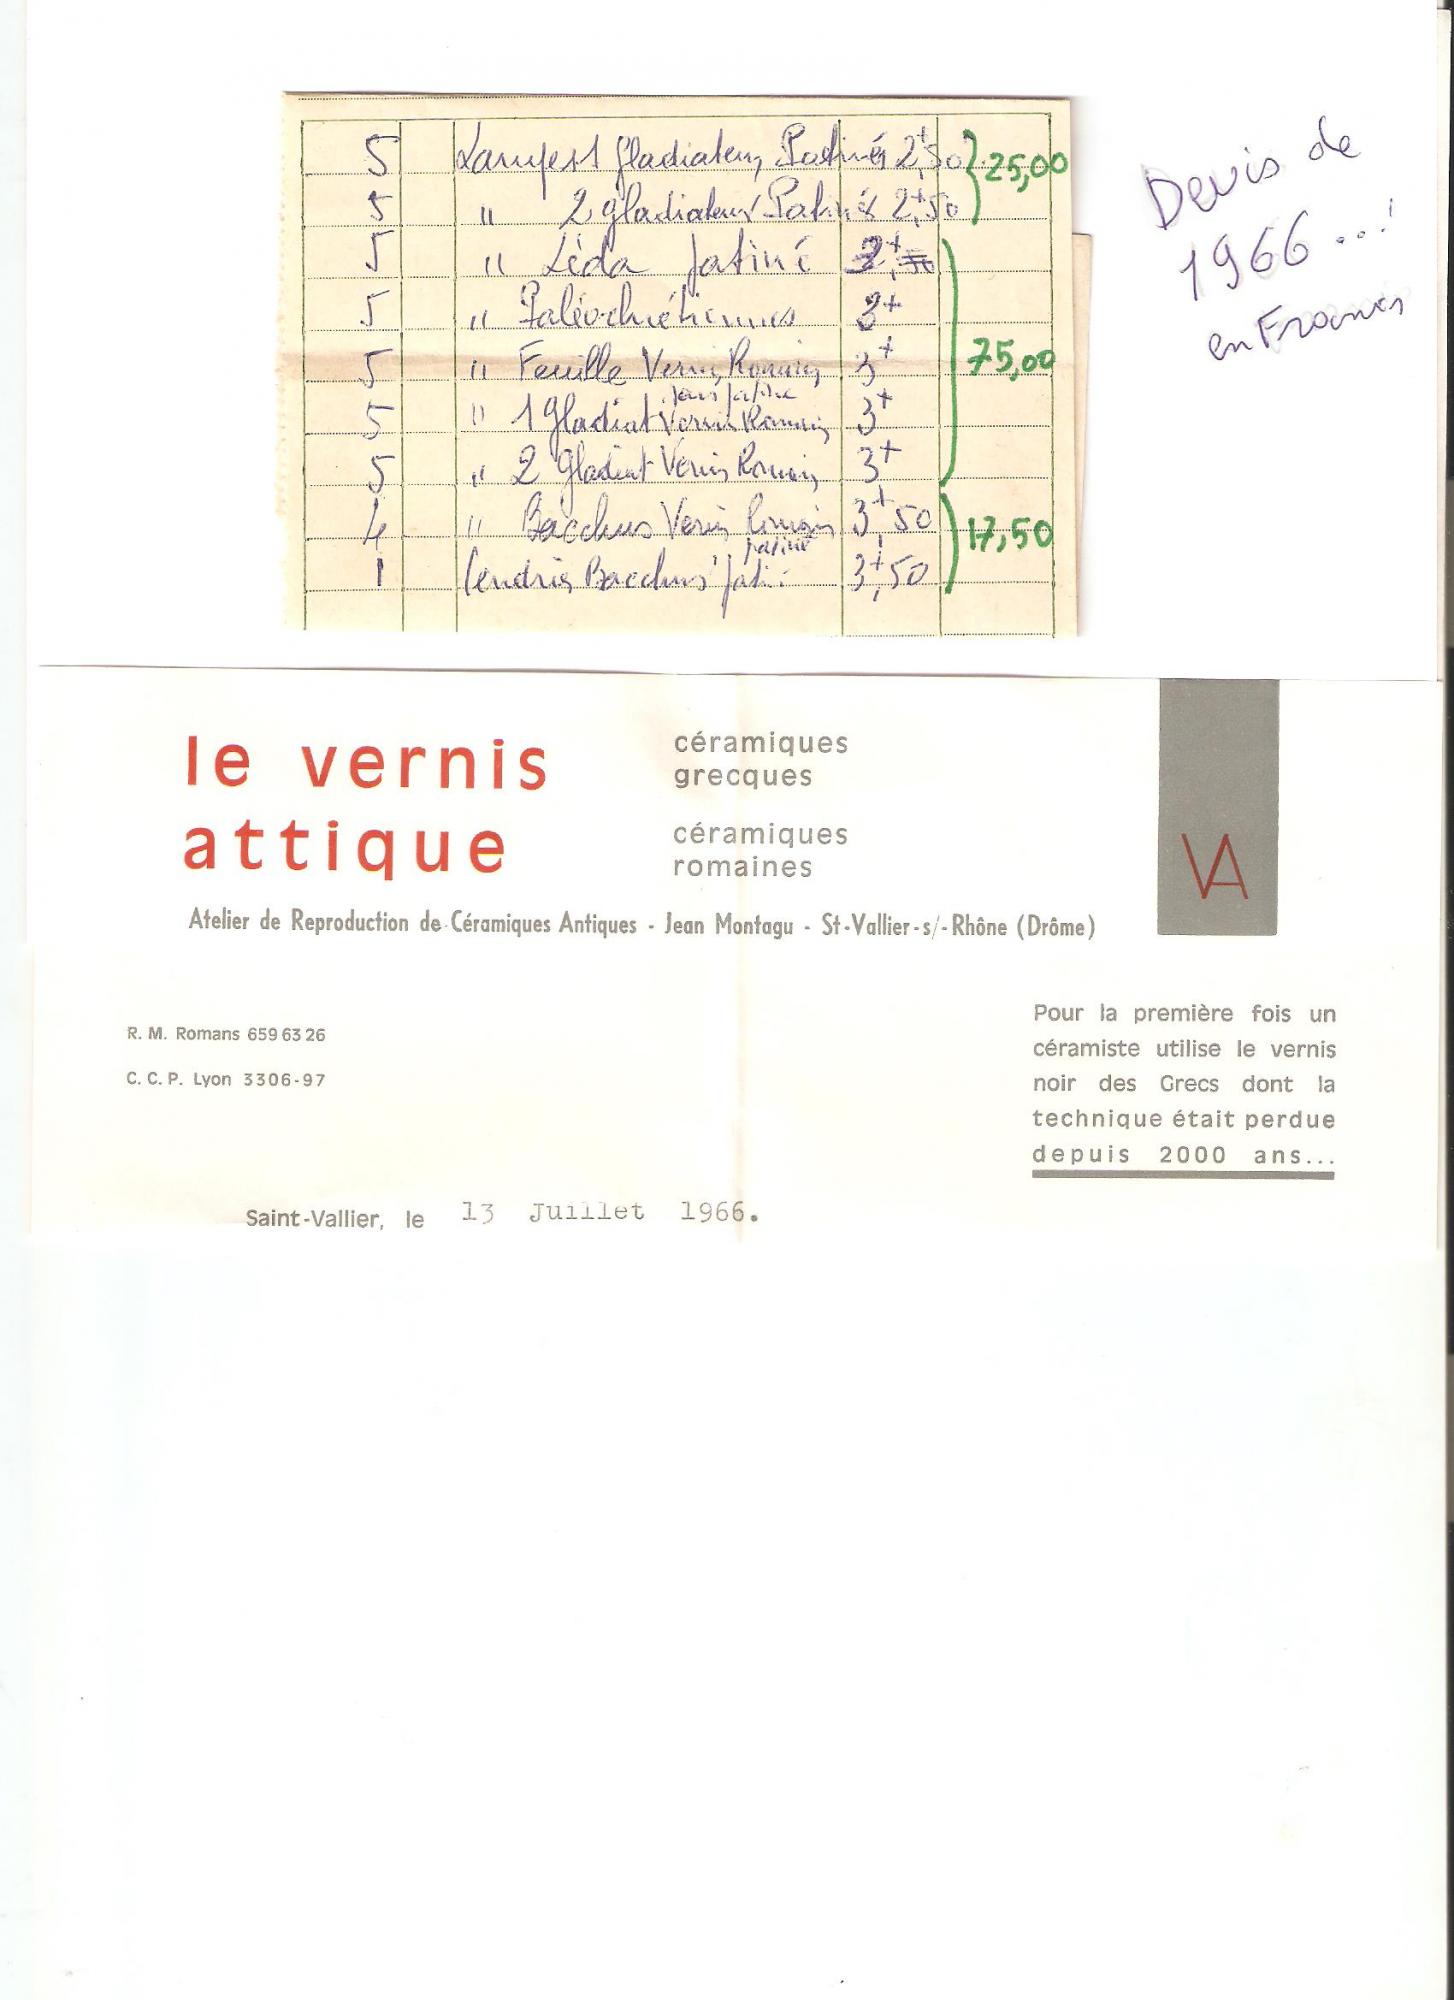 5 Lampes 1 gladiateur Patinés 2,50 25,00
5 " 2 gladiateurs Patinés 2,50
5 " Léda patiné 3
5 " Paléochrétiennes 3
5 " Feuille Vernis Romain 3 75,00
sans patine
5 " 1 Gladiat Vernis Romain 3
5 " 2 Gladiat Vernis Romain 3
4 " Bacchus Vernis Romain 3,50 17,50
patiné
1 Cendrier Bacchus pati 3,50
Devis de
1966 ...!
en Francs
le vernis
attique
céramiques
grecques
céramiques
romaines
VA
Atelier de Reproduction de Céramiques Antiques - Jean Montagu - St-Vallier-s/-Rhône (Drôme)
R. M. Romans 659 63 26
C. C. P. Lyon 3306-97
Pour la première fois un
céramiste utilise le vernis
noir des Grecs dont la
technique était perdue
depuis 2000 ans...
Saint-Vallier, le 13 Juillet 1966.